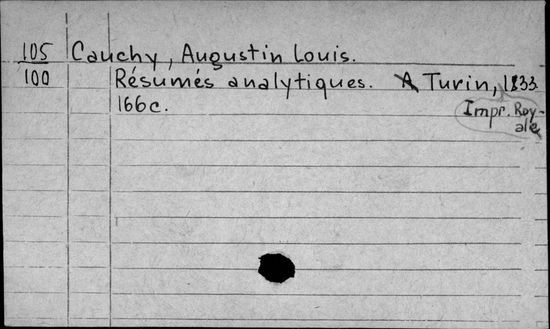 105 Cauchy, Augustin Louis.
100 Résumés analytiques. A Turin, 1833
166c. Impr. Roy-
ale